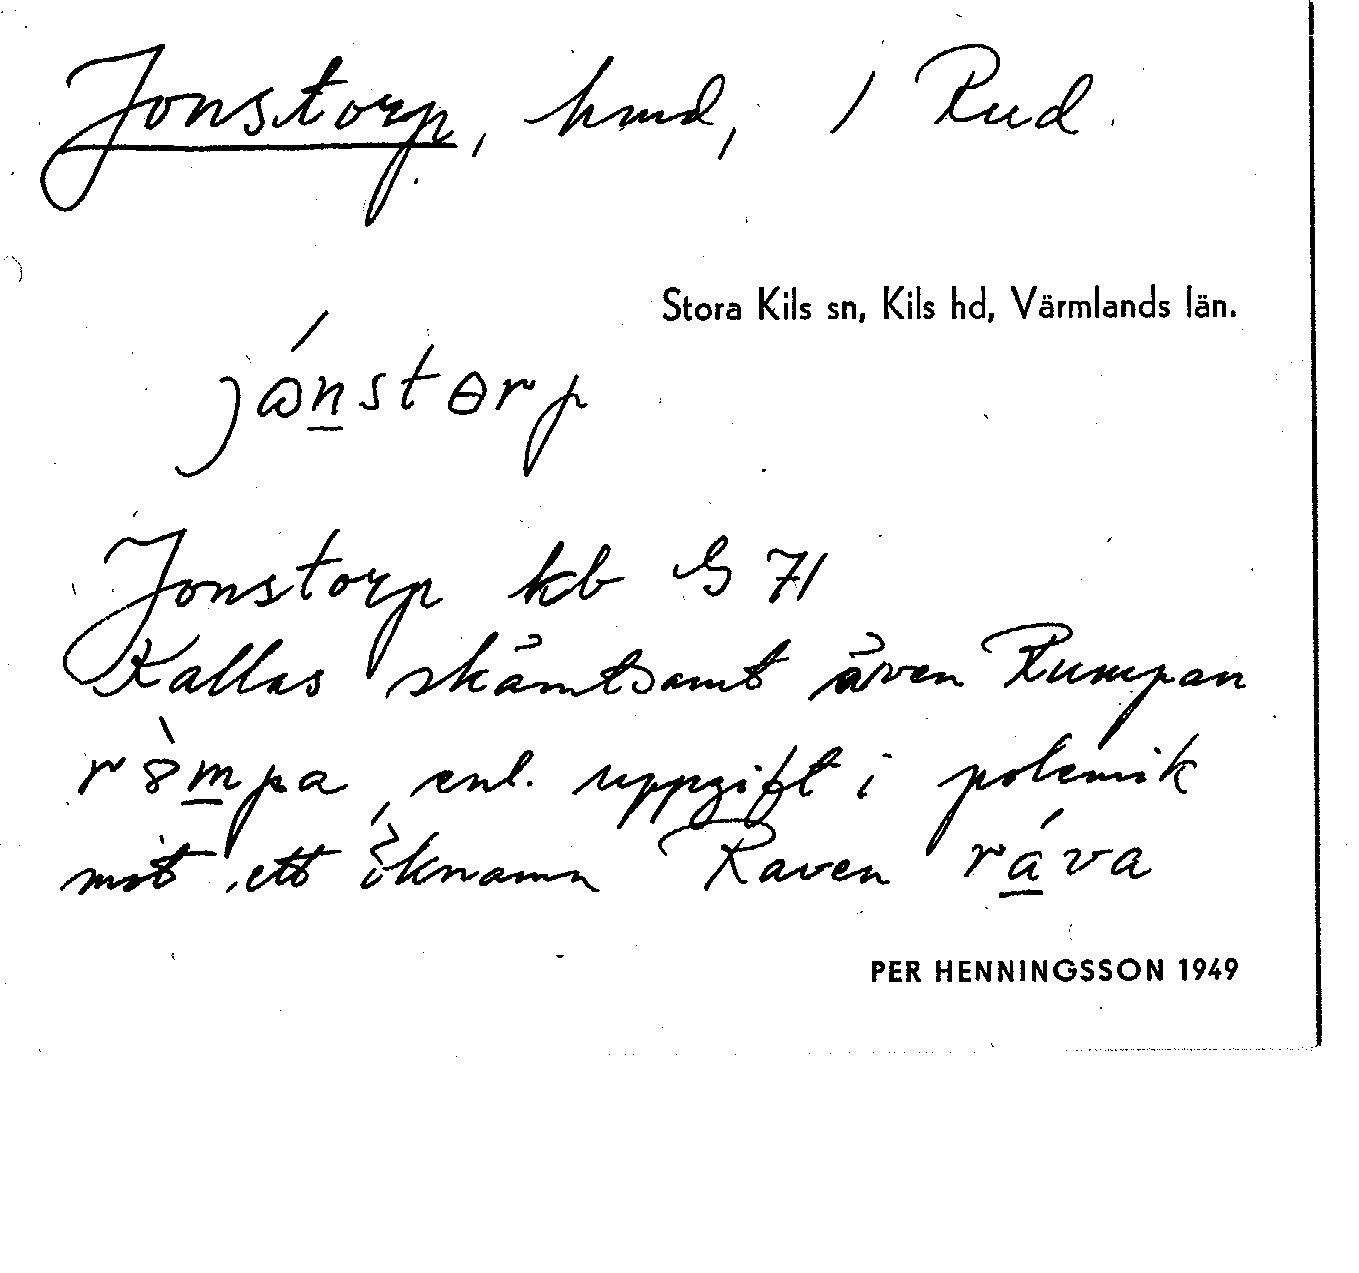 Jonstorp, hmd, / Rud.
Stora Kils sn, Kils hd, Värmlands län.
jónstɵrp
Jonstorp kb G 71
Kallas skämtsamt även Rumpan
ròmpa, enl. uppgift i polemik
mot ett öknamn Raven ráva
PER HENNINGSSON 1949